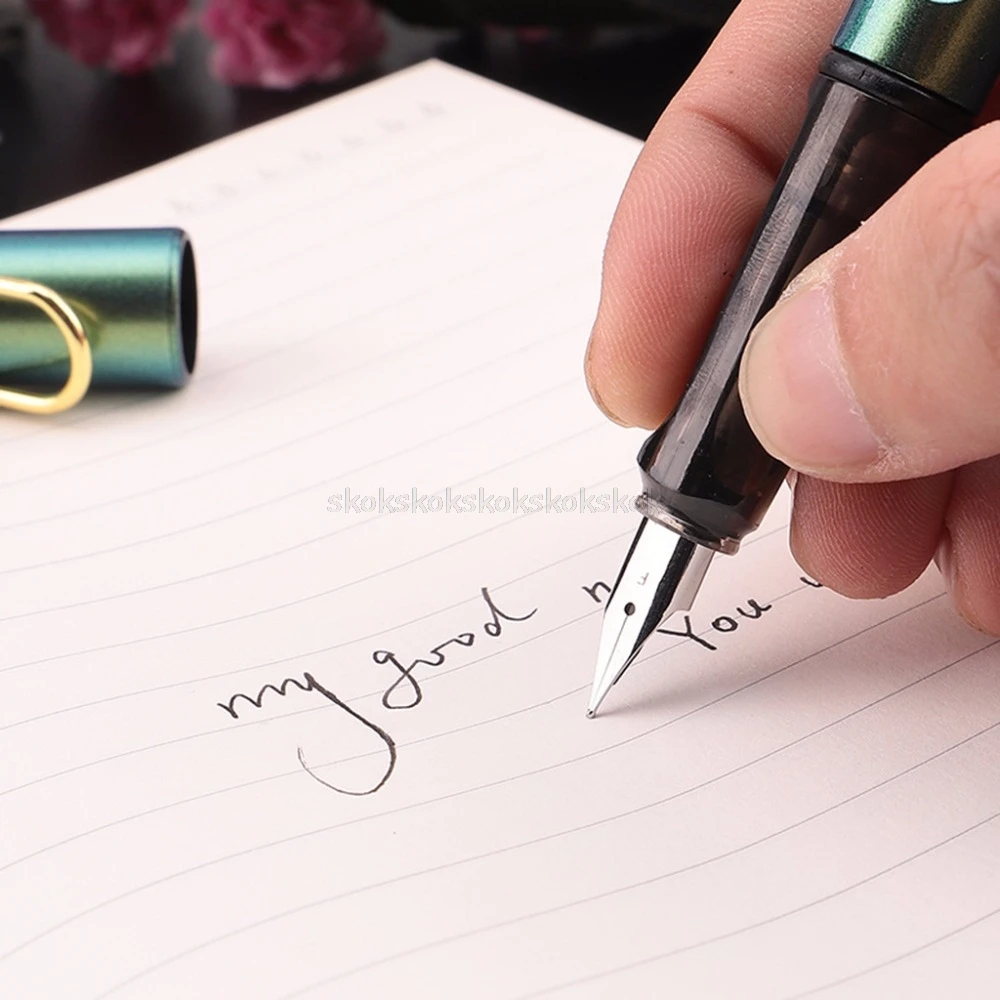 skokskokskokskoksko
my good n
You